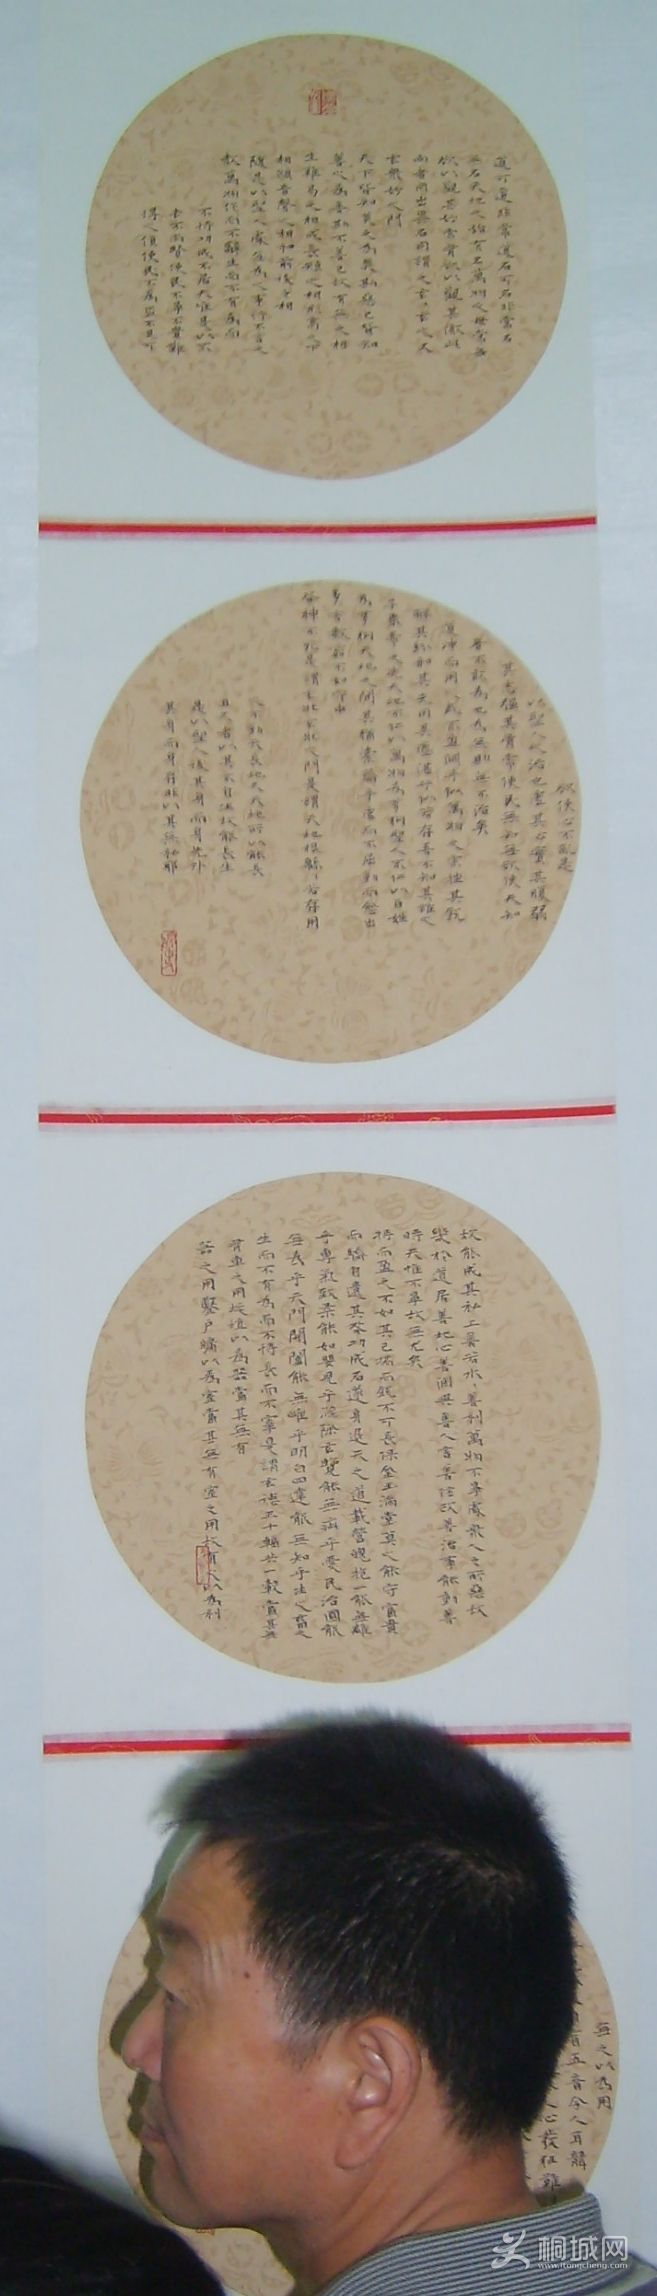 道可道非常道名可名非常名
無名天地之始有名萬物之母常無
欲以觀其妙常有欲以觀其徼此
兩者同出異名同謂之玄玄之又
玄衆妙之門
天下皆知美之為美斯惡已皆知
善之為善斯不善已故有無之相
生難易之相成長短之相形高之下
相傾音聲之相和前後之相
隨是以聖人處無為之事行不言之
教萬物作而不辭生而不有為而
不恃功成不居夫惟是以不
去不尚賢使民不爭不貴難
得之貨使民不為盜不見可
欲使心不亂是
以聖人之治也虛其心實其腹弱
其志強其骨常使民無知無欲使夫知
者不敢為也為無則無不治矣
道冲而用之或不盈淵乎似萬物之宗挫其銳
解其紛和其光同其塵湛兮似若存吾不知其誰之
子象帝之先天地不仁以萬物為芻狗聖人不仁以百姓
為芻狗天地之間其猶橐籥乎虛而不屈動而愈出
多言數窮不如守中
谷神不死是謂玄牝玄牝之門是謂天地根緜緜若存用
之不勤天長地久天地所以能長
且久者以其不自生故能長生
是以聖人後其身而身先外
其身而身存非以其無私耶
故能成其私上善若水水善利萬物不爭處衆人之所惡故
幾於道居善地心善淵與善人言善信政善治事能動善
時夫惟不爭故無尤矣
持而盈之不如其已揣而銳不可長保金玉滿堂莫之能守富貴
而驕自遺其咎功成名遂身退天之道載營魄抱一能無離
乎專氣致柔能如嬰兒乎滌除玄覽能無疵乎愛民治國能
無為乎天門開闔能無雌乎明白四達能無知乎生之畜之
生而不有為而不恃長而不宰是謂玄德三十輻共一轂當其無
有車之用埏埴以為器當其無有
器之用鑿戶牖以為室當其無有室之用故有之以為利
無之以為用
盲五音令人耳聾
人心發狂難
桐城网
www.itongcheng.com